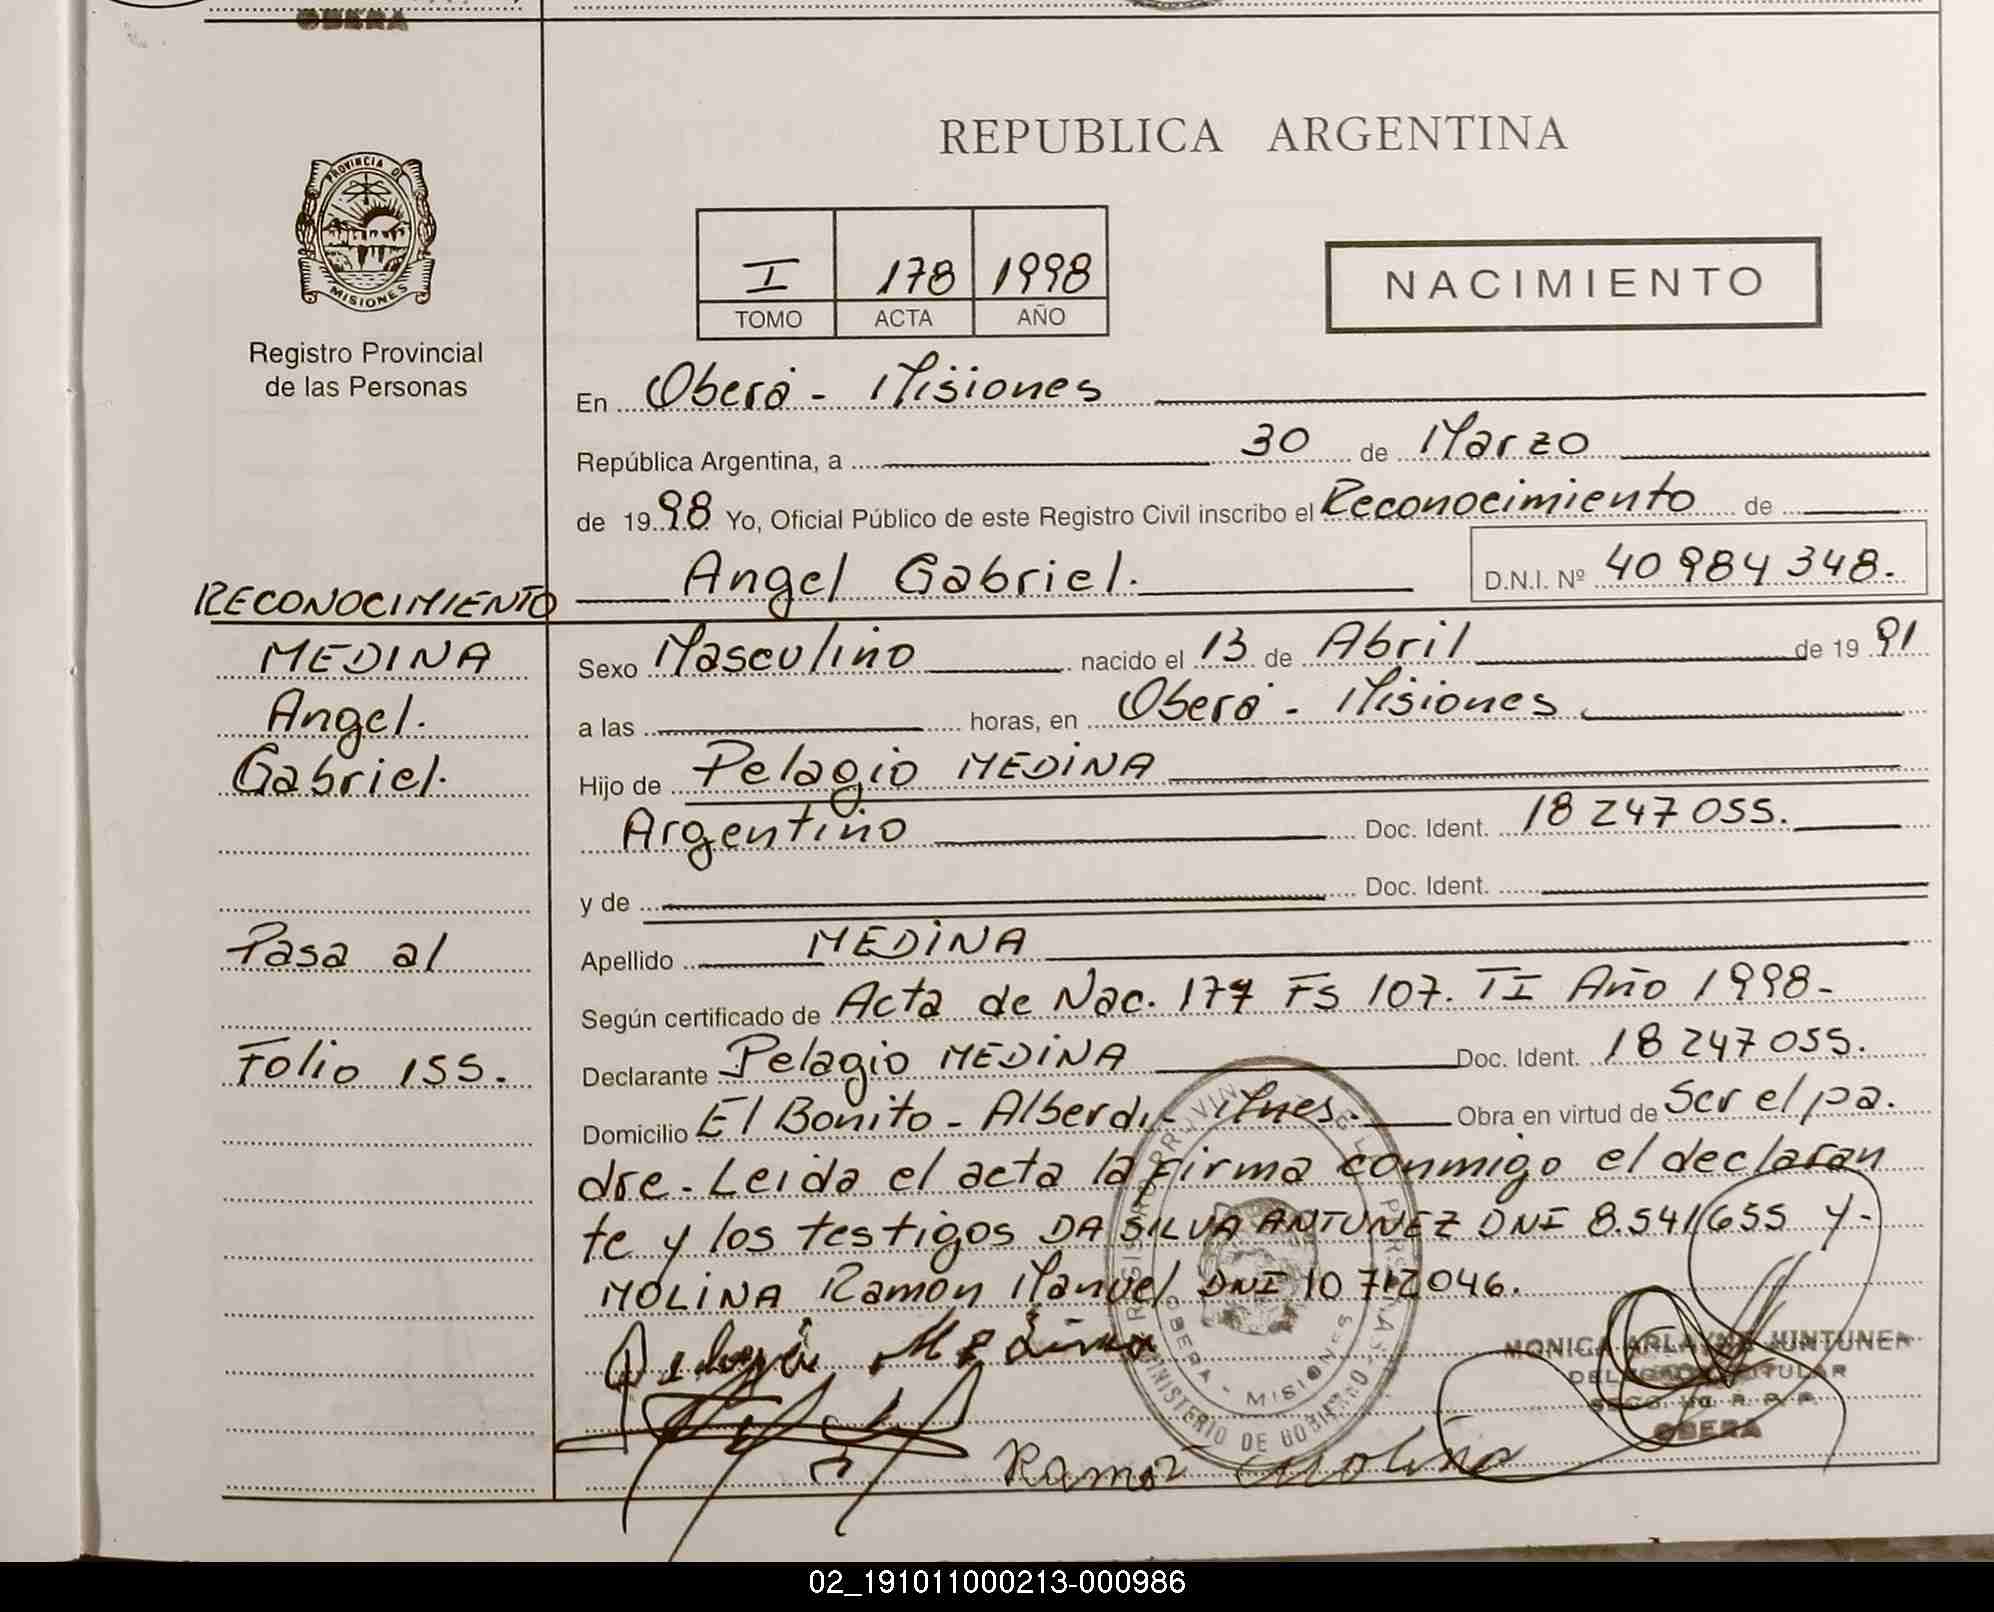 OBERA
REPUBLICA ARGENTINA
PROVINCIA DE
MISIONES
Registro Provincial
de las Personas
I 178 1998
TOMO ACTA AÑO
NACIMIENTO
En Oberá - Misiones
República Argentina, a 30 de Marzo
de 1998 Yo, Oficial Público de este Registro Civil inscribo el Reconocimiento de
Angel Gabriel. D.N.I. Nº 40 984 348.
RECONOCIMIENTO
MEDINA
Angel.
Gabriel.
Pasa al
Folio 155.
Sexo Masculino nacido el 13 de Abril de 1991
a las horas, en Oberá - Misiones
Hijo de Pelagio MEDINA
Argentino Doc. Ident. 18 247 055.
y de Doc. Ident.
Apellido MEDINA
Según certificado de Acta de Nac. 177 Fs 107. TI Año 1998-
Declarante Pelagio MEDINA Doc. Ident. 18 247 055.
Domicilio El Bonito - Alberdi - Mnes. Obra en virtud de Ser el pa.
dre. Leida el acta la firma conmigo el declaran
te y los testigos DA SILVA ANTUNEZ DNI 8.541655 y-
MOLINA Ramon Manuel DNI 10 712046.
Pelagio Medina
MONICA ARLAYNE JUNTUNEN
DELEGADO TITULAR
OBERA
OBERA - MISIONES
MINISTERIO DE GOBIERNO
Ramon Molina
02_191011000213-000986